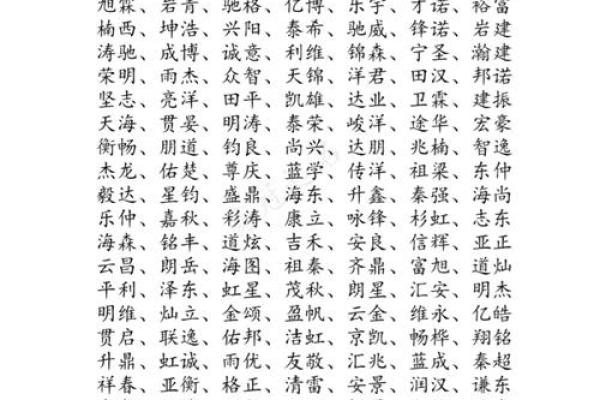 旭霖、岩青、驰格、亿博、乐宇、才诺、裕富
楠西、坤浩、兴阳、泰希、驰威、锋诺、岩建
涛驰、成博、诚意、利维、锦森、宁圣、瀚建
荣明、雨杰、众智、天锦、洋君、田汉、邦诺
坚志、亮洋、田平、凯雄、达业、卫霖、建振
天海、贯晏、明涛、泰荣、峻洋、途华、宏豪
衡畅、朋道、钧良、尚兴、达朋、兆楠、智逸
杰龙、佑楚、尊庆、蓝学、传洋、祖梁、东仲
毅达、星钧、盛鼎、海东、升鑫、秦强、海尚
乐仲、嘉秋、彩涛、康立、咏锋、杉虹、志东
海森、铭丰、道炫、吉禾、安良、信辉、亚正
云昌、朗岳、海图、祖秦、齐鼎、富旭、道灿
平利、泽东、虹星、茂秋、朗星、汇安、明杰
明维、灿立、金颂、盈帆、云金、维永、亿皓
贯启、联逸、佑邦、洁虹、京凯、畅桦、翔铭
升鼎、虹诚、雨优、友敬、汇兆、蓝成、秦超
祥春、亚衡、格正、清雷、安景、润汉、谦东